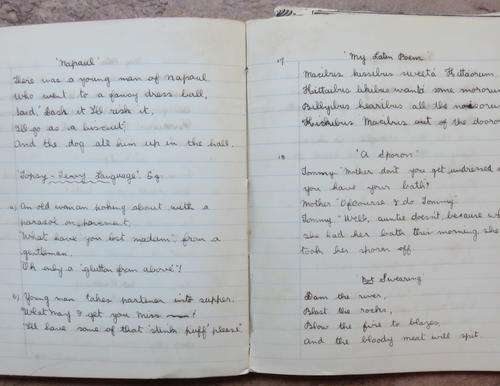 'Napaul'
There was a young man of Napaul
Who went to a fancy dress ball,
Said, "Dash it I'll risk it,
I'll go as a biscuit,"
And the dog ate him up in the hall.
'Topsy-Turvy Language'. Eg.
a) An old woman poking about with a
parasol on pavement,
"What have you lost madam", from a
gentleman.
"Oh only a 'glutton from above'"!
b) Young man takes partener into supper.
"What may I get you Miss ——?
"I'll have some of that 'stink puff' please"
17 'My Laten Poem'
Maeibus kissibus sweeta Kittaorum
Kittaibus likibus wanta some mororum
Billyibus hearibus all the
Kickibus Maeibus out of the dooro
18 'A Sporon'
Tommy "Mother don't you get undressed
you have your bath?
Mother "Ofcourse I do Tommy".
Tommy. "Well, auntie doesn't, because
she had her bath this morning she
took her sporn off.
'Not Swearing'
Dam the river,
Blast the rocks,
Blow the fire to blazes,
And the bloody meat will spit.